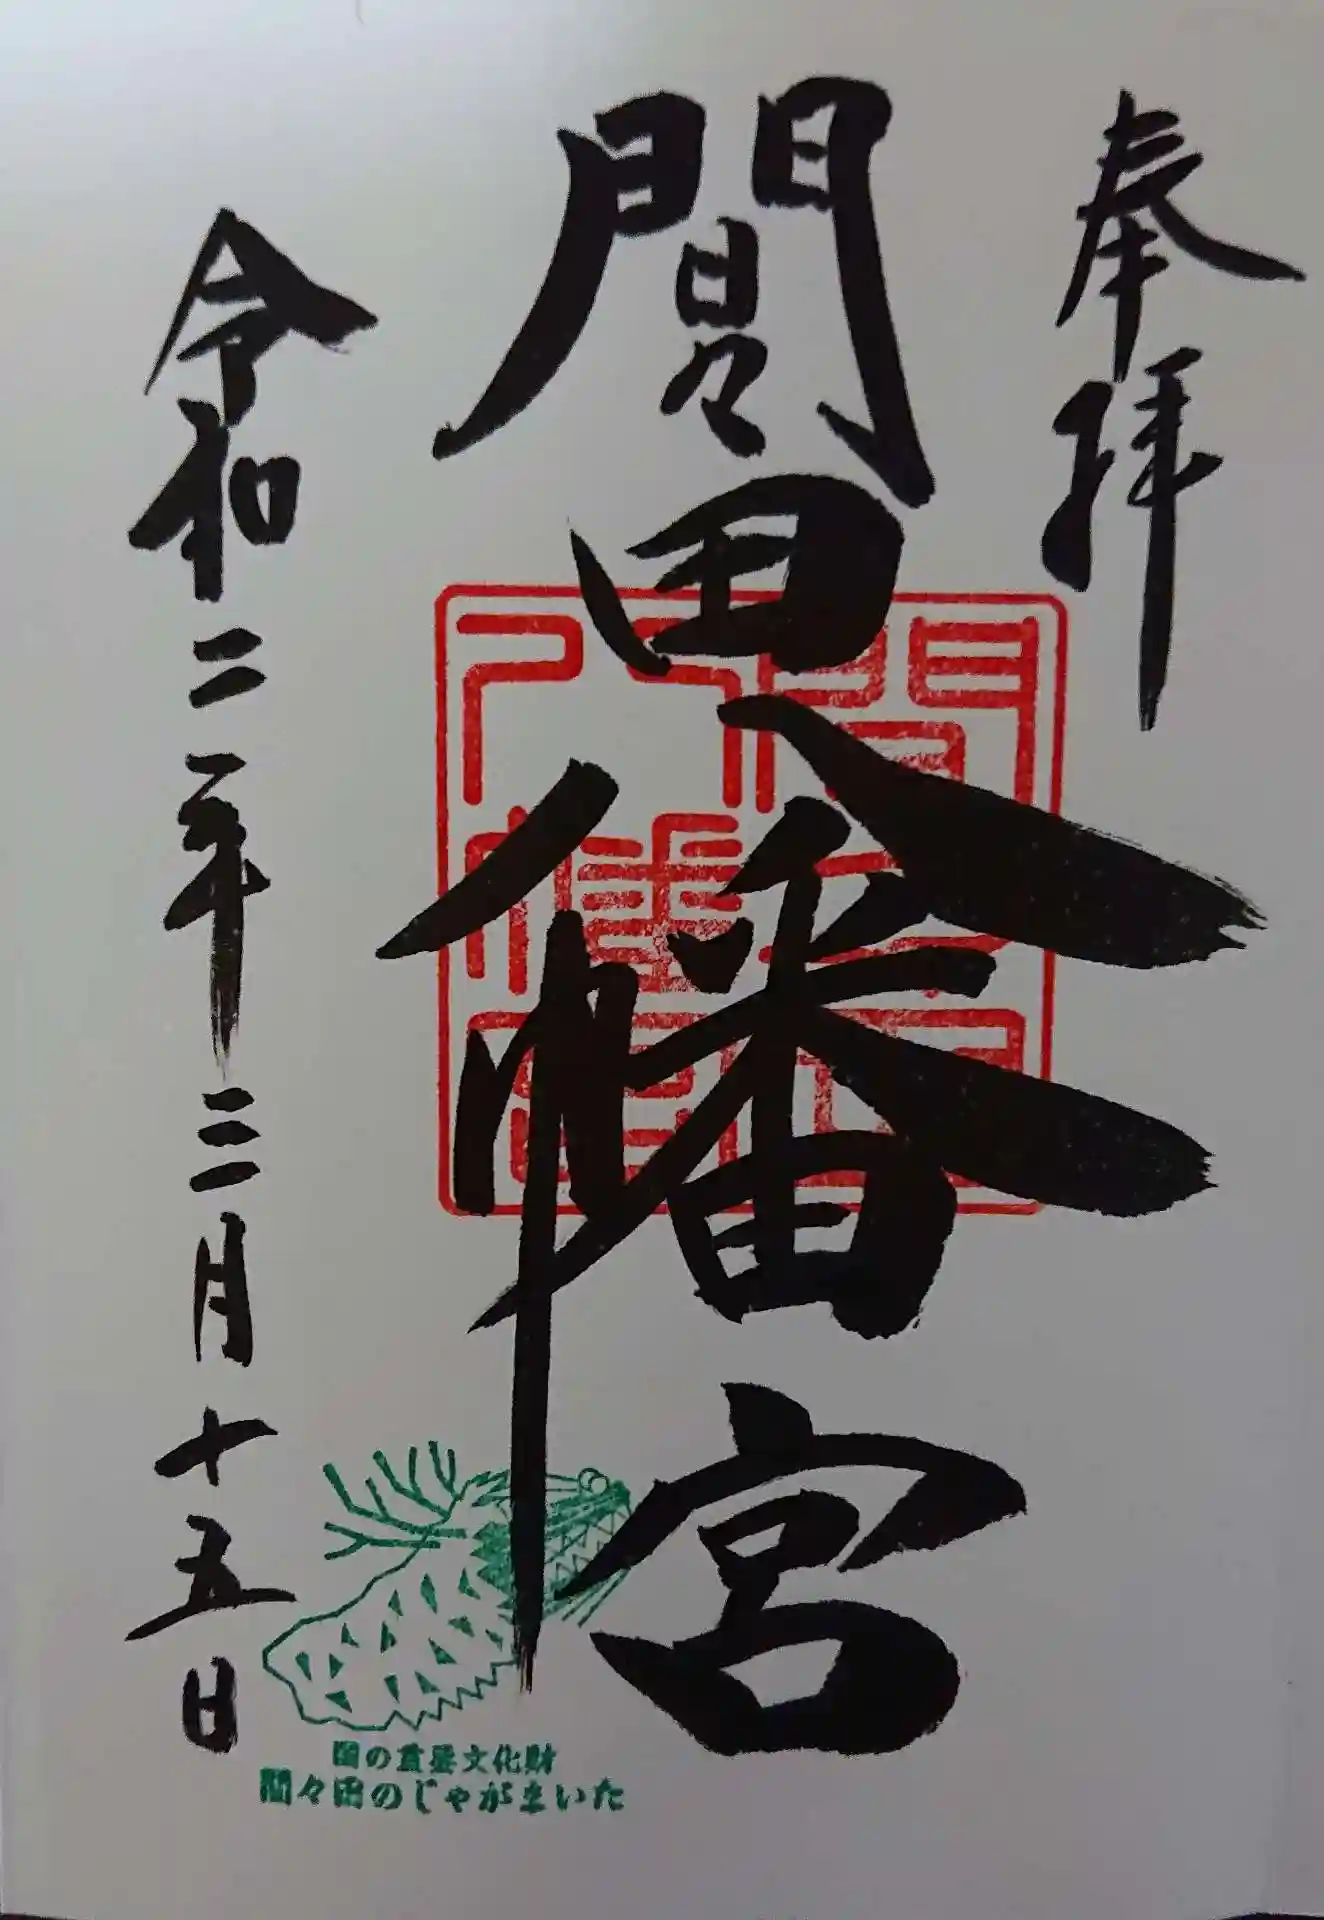 奉拝
間々田八幡宮
令和二年三月十五日
国の重要文化財
間々田のじゃがまいた